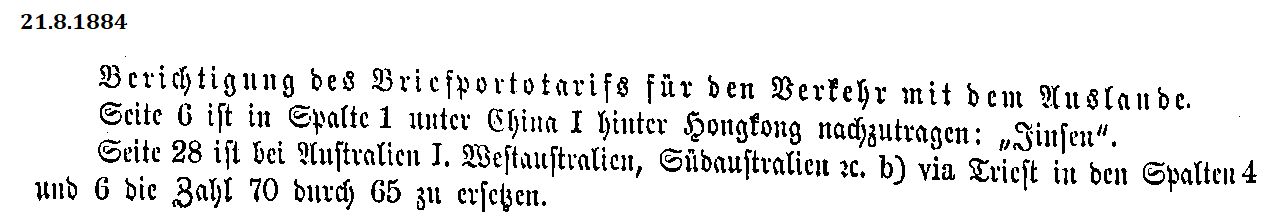 21.8.1884
Berichtigung des Briefportotarifs für den Verkehr mit dem Auslande.
Seite 6 ist in Spalte 1 unter China I hinter Hongkong nachzutragen: „Jinsen“.
Seite 28 ist bei Australien I. Westaustralien, Südaustralien ꝛc. b) via Triest in den Spalten 4
und 6 die Zahl 70 durch 65 zu ersetzen.